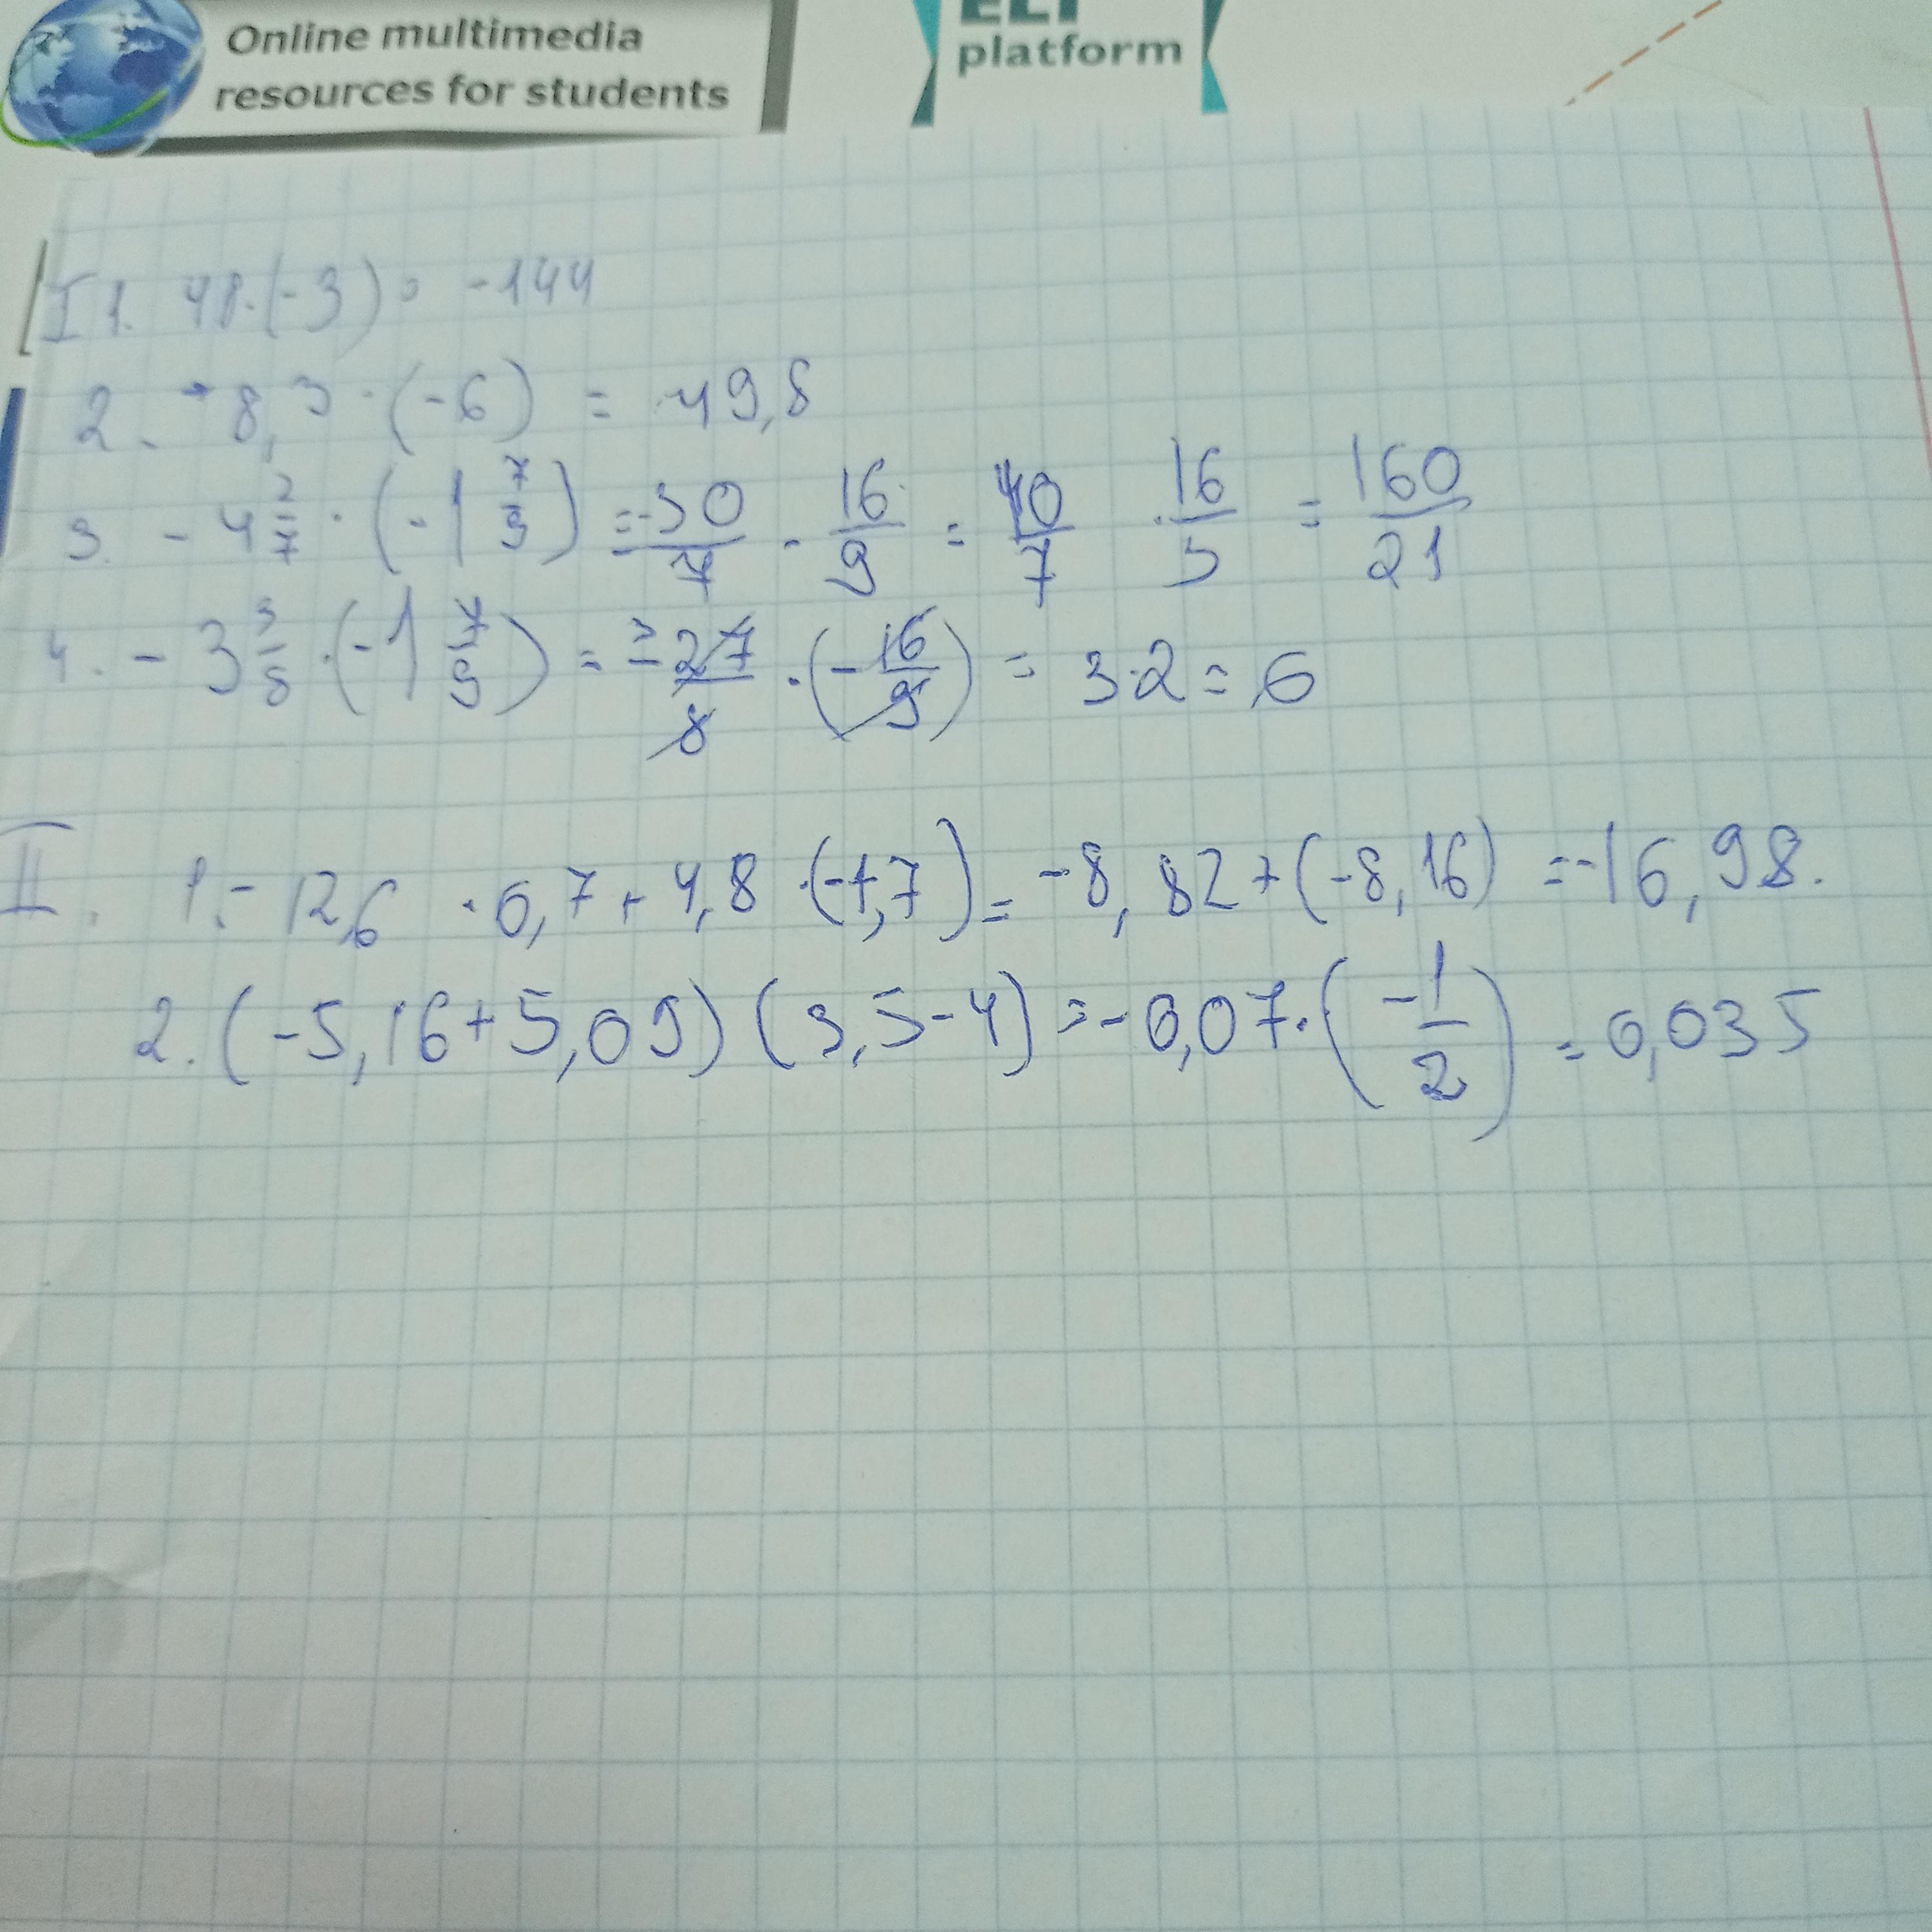 Online multimedia
resources for students
ELI
platform
I 1. 48·(-3) = -144
2. -8,3·(-6) = 49,8
3. -4 2/7 · (-1 7/9) = -30/7 - 16/9 = 10/7 · 16/3 = 160/21
4. -3 3/8 · (-1 7/9) = -27/8 · (-16/9) = 3·2 = 6
II. 1. -12,6 · 0,7 + 4,8 · (-1,7) = -8,82 + (-8,16) = -16,98.
2. (-5,16+5,09) (3,5-4) = -0,07·(-1/2) = 0,035